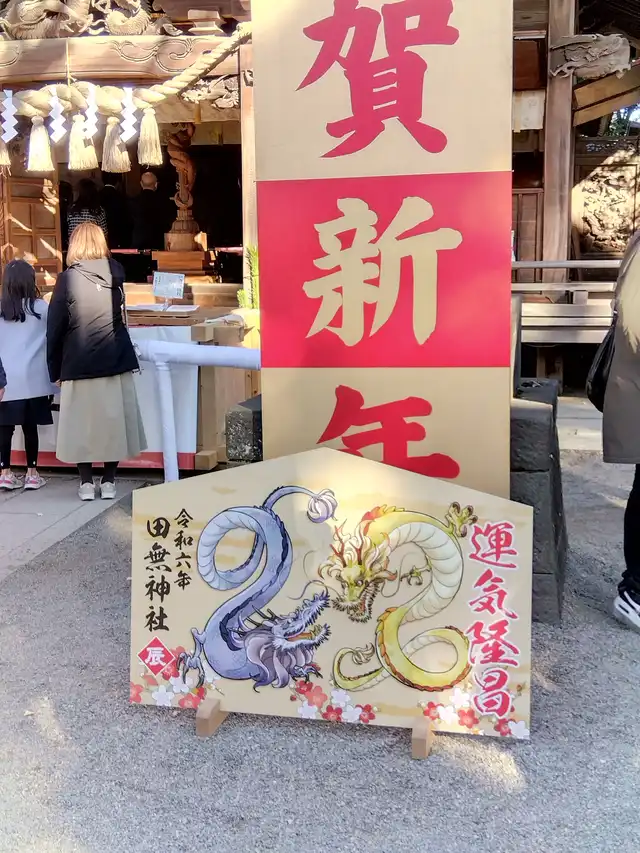 賀
新
年
令和六年
田無神社
辰
運気隆昌